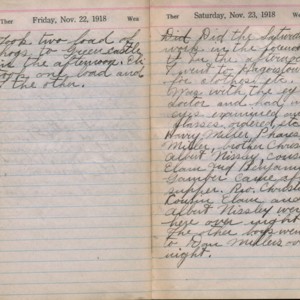 Ther Friday, Nov. 22, 1918 Wea
Took two load of
hogs to Greencastle
in the afternoon. Eli
took one load and
I the other.
Ther Saturday, Nov. 23, 1918 Wea
Did Did the Saturday
work in the forenoon
In the afternoon
I went to Hagerstown
for a
Was with the eye
doctor and had my
eyes examined and
glasses ordered.
Harry Miller, Phares
Miller, brother Christ
Albert Nissley, cousin
Elam and Benjamin
came
supper. Rev. Christ
Cousin Elam and
Albert Nissley were
here over night
The other boys went
to Dan Millers over
night.